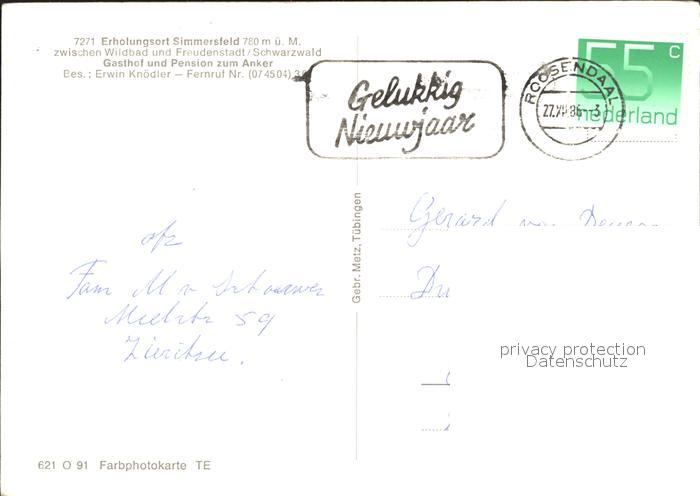 7271 Erholungsort Simmersfeld 780 m ü. M.
zwischen Wildbad und Freudenstadt/Schwarzwald
Gasthof und Pension zum Anker
Bes.: Erwin Knödler — Fernruf Nr. (074504)
Gelukkig
Nieuwjaar
ROOSENDAAL
27.XII.86-3
55 c
nederland
Gebr. Metz, Tübingen
Gerard
afz
Fam M v
59
privacy protection
Datenschutz
621 O 91 Farbphotokarte TE